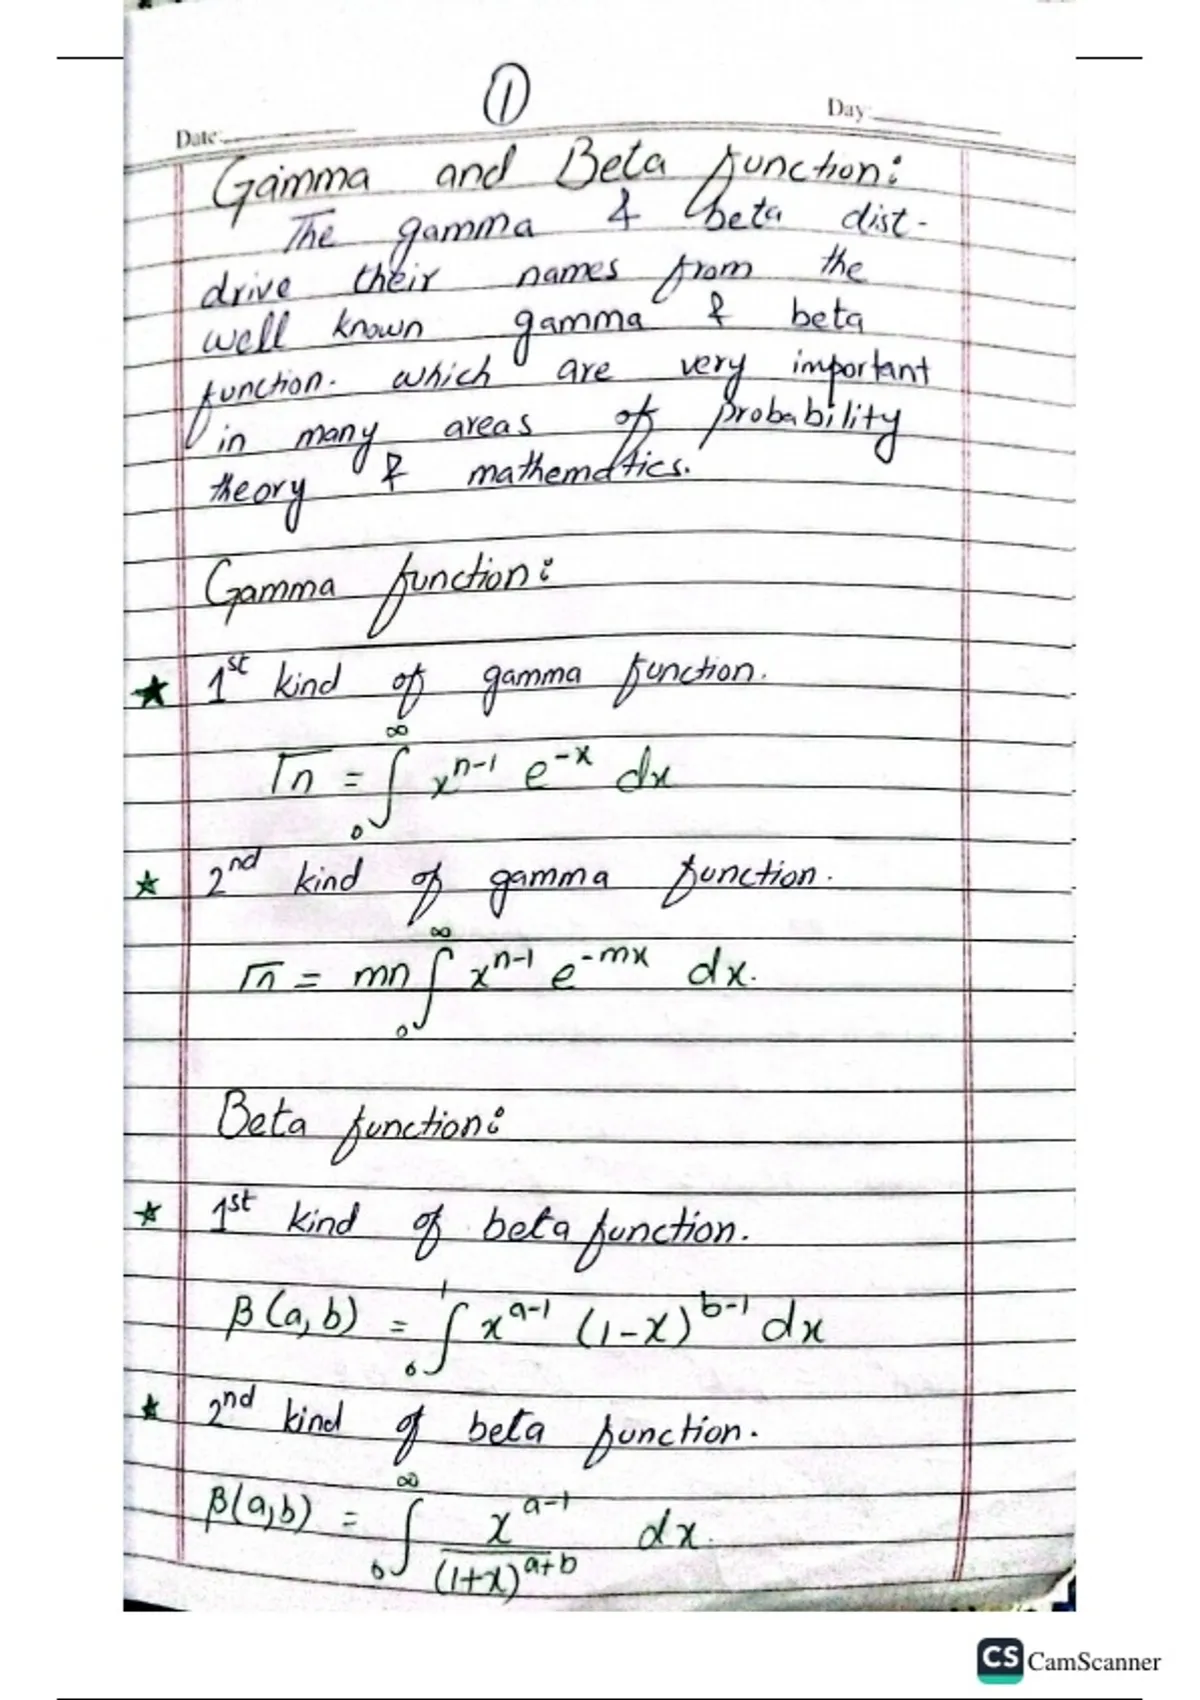 1
Date: Day:
Gamma and Beta function:
The gamma & beta dist-
drive their names from the
well known gamma & beta
function. which are very important
in many areas of probability
theory & mathematics.
Gamma function:
★ 1st kind of gamma function.
Γn = ∫₀^∞ x^(n-1) e^(-x) dx
★ 2nd kind of gamma function.
Γn = mn ∫₀^∞ x^(n-1) e^(-mx) dx.
Beta function:
★ 1st kind of beta function.
β(a,b) = ∫₀^1 x^(a-1) (1-x)^(b-1) dx
★ 2nd kind of beta function.
β(a,b) = ∫₀^∞ x^(a-1)/(1+x)^(a+b) dx.
CS CamScanner